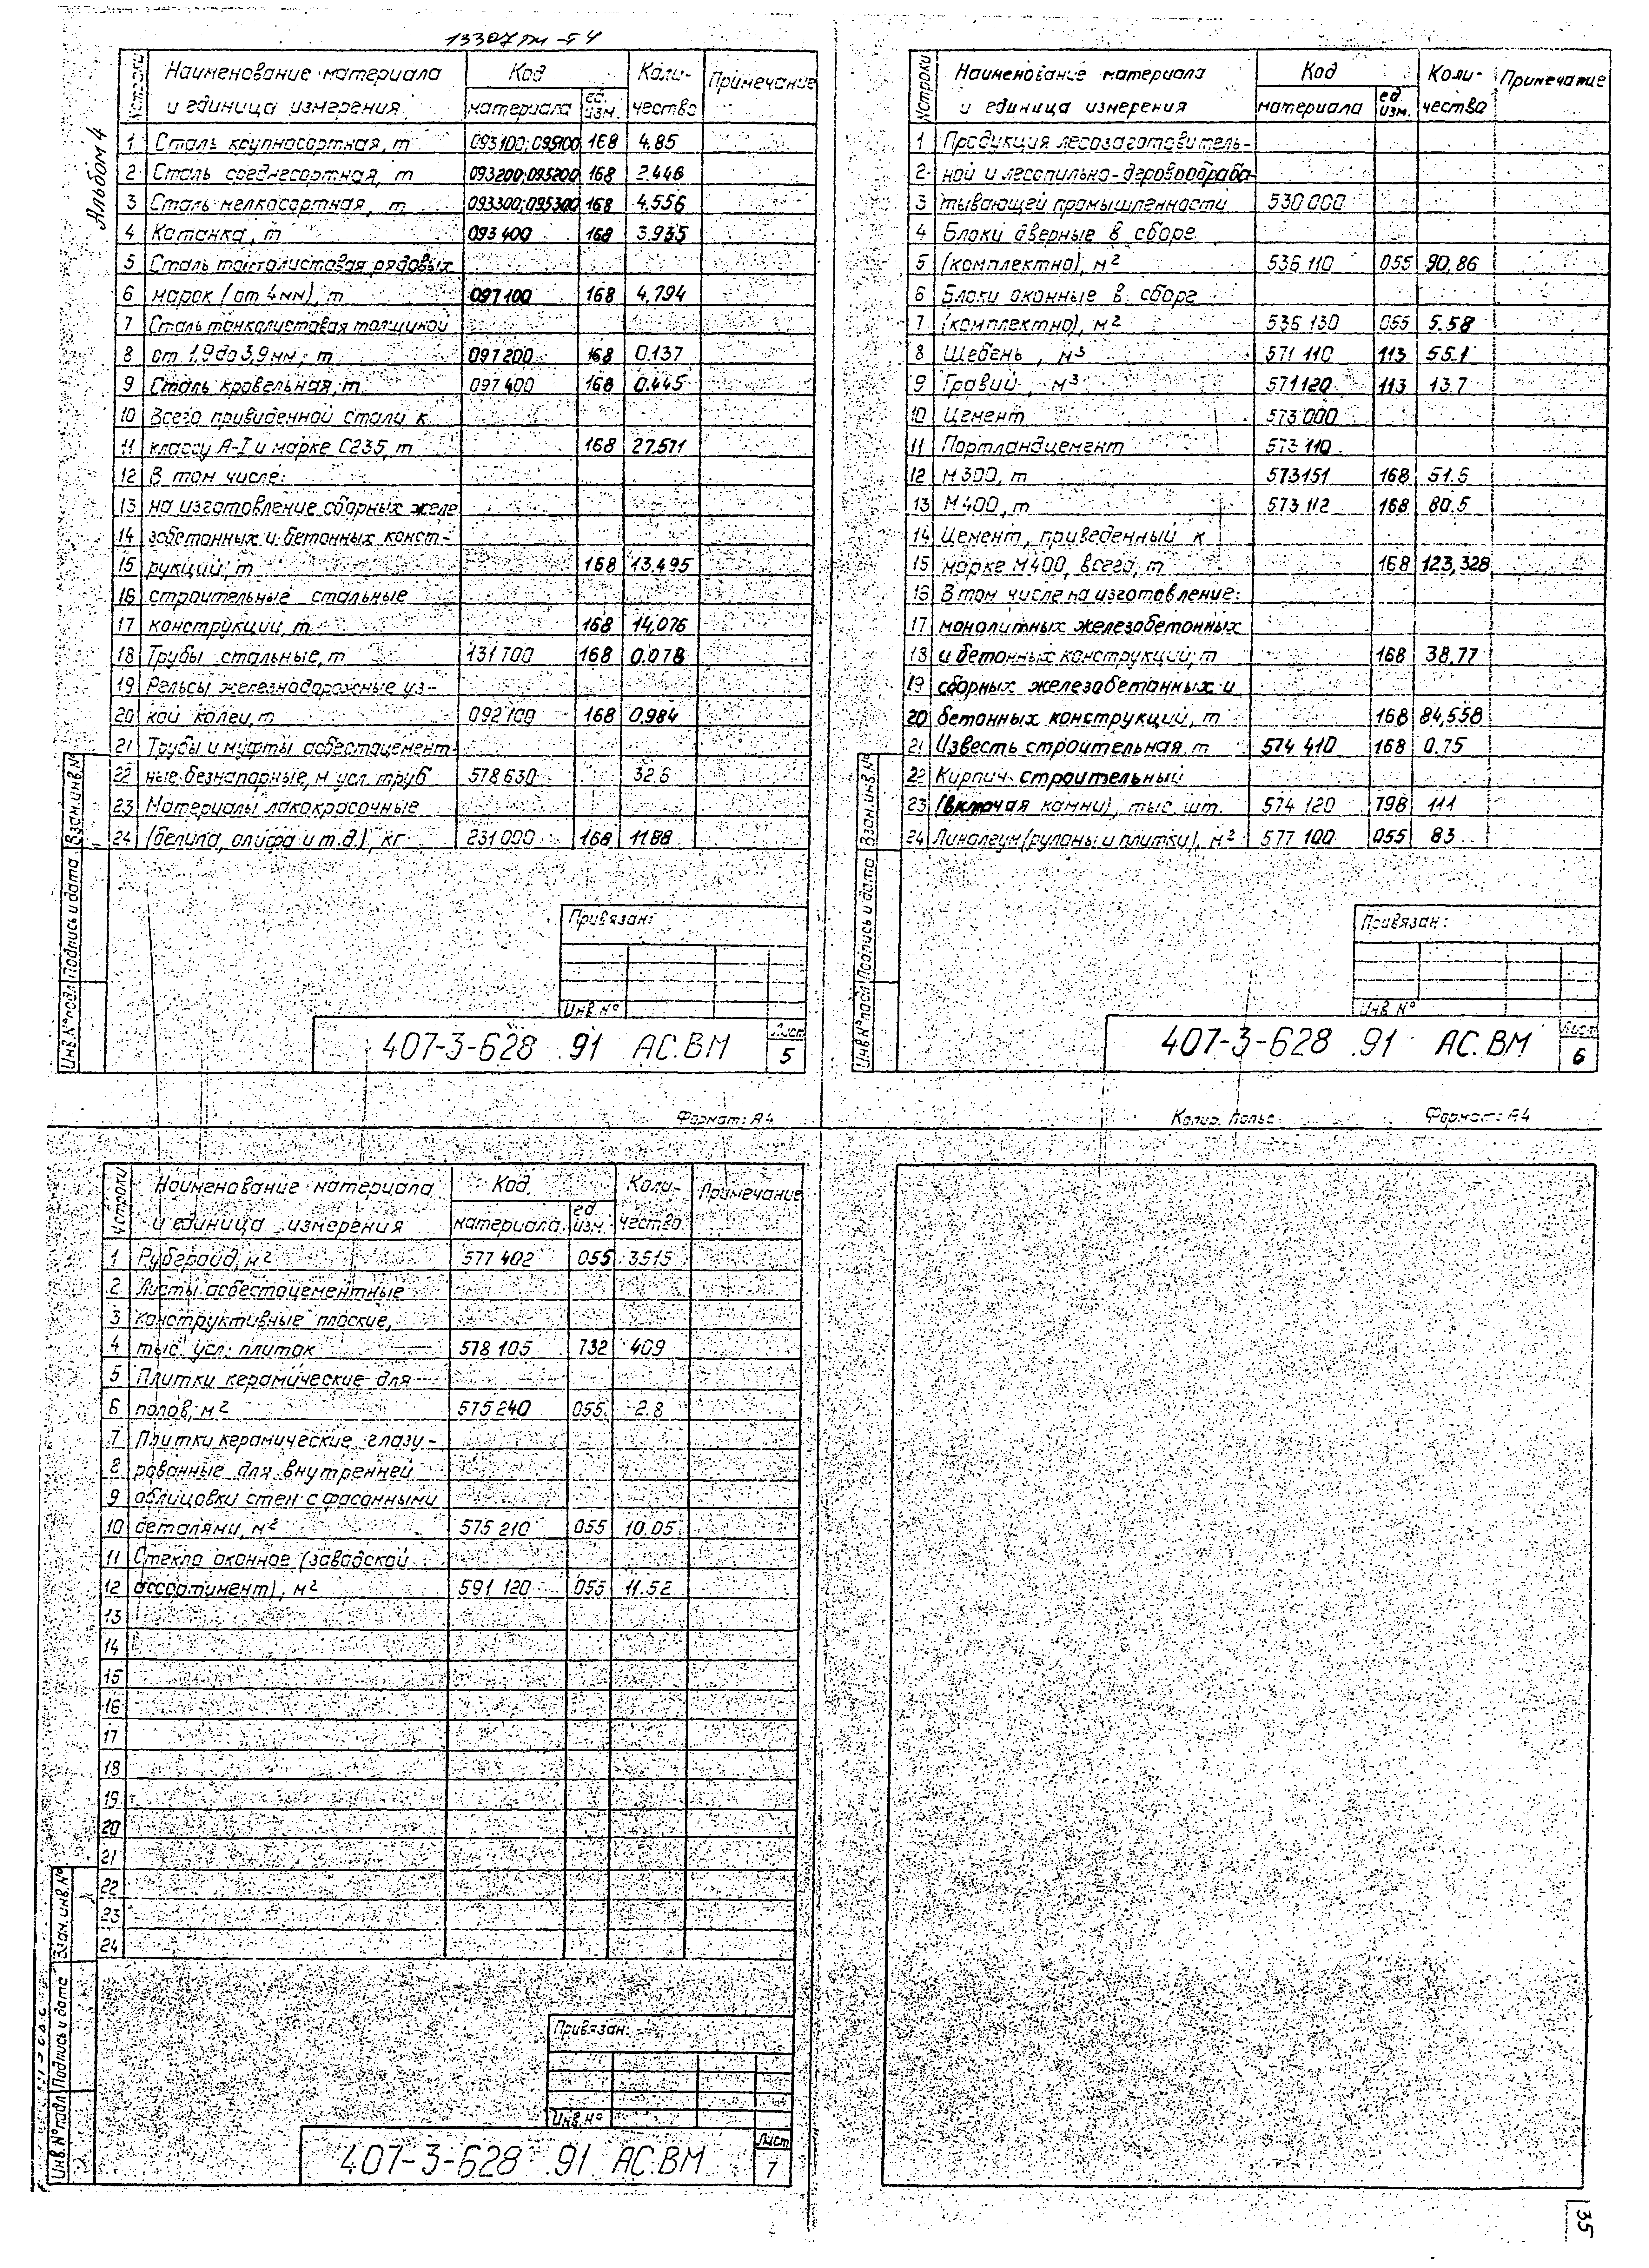 13307тм-т4
Альбом 4
№ строки Наименование материала и единица измерения Код материала ед. изм. Количество Примечание
1 Сталь крупносортная, т 093100;095100 168 4.85
2 Сталь среднесортная, т 093200;095200 168 2.446
3 Сталь мелкосортная, т 093300;095300 168 4.556
4 Катанка, т 093400 168 3.935
5 Сталь толстолистовая рядовых
6 марок (от 4мм), т 097100 168 4,794
7 Сталь тонколистовая толщиной
8 от 1,9 до 3,9 мм, т 097200 168 0.137
9 Сталь кровельная, т 097400 168 0.445
10 Всего приведенной стали к
11 классу А-I и марке С235, т 168 27.571
12 В том числе:
13 на изготовление сборных желе
14 зобетонных и бетонных конст-
15 рукций, т 168 13.495
16 строительные стальные
17 конструкции, т 168 14,076
18 Трубы стальные, т 131700 168 0.078
19 Рельсы железнодорожные уз-
20 кой колеи, т 092100 168 0.984
21 Трубы и муфты асбестоцемент-
22 ные безнапорные, м усл. труб 578630 32.6
23 Материалы лакокрасочные
24 (белила, олифа и т.д.), кг 231000 168 1188
Взам.инв.№
Подпись и дата
Инв.№ подл
Привязан:
Инв.№
407-3-628 .91 АС.ВМ
Лист
5
Формат: А4
№ строки Наименование материала и единица измерения Код материала ед. изм. Количество Примечание
1 Продукция лесозаготовитель-
2 ной и лесопильно-деревообраба-
3 тывающей промышленности 530000
4 Блоки дверные в сборе
5 (комплектно), м² 536 110 055 90,86
6 Блоки оконные в сборе
7 (комплектно), м² 536 130 055 5.58
8 Щебень, м³ 571 110 113 55.1
9 Гравий, м³ 571120 113 13.7
10 Цемент 573 000
11 Портландцемент 573 110
12 М 300, т 573151 168 51.5
13 М 400, т 573 112 168 80.5
14 Цемент, приведенный к
15 марке М400, всего, т 168 123,328
16 В том числе на изготовление:
17 монолитных железобетонных
18 и бетонных конструкций, т 168 38.77
19 сборных железобетонных и
20 бетонных конструкций, т 168 84,558
21 Известь строительная, т 574 410 168 0.75
22 Кирпич строительный
23 (включая камни), тыс. шт. 574 120 798 111
24 Линолеум (рулоны и плитки), м² 577 100 055 83
Взам.инв.№
Подпись и дата
Инв.№ подл
Привязан:
Инв.№
407-3-628 .91 АС.ВМ
Лист
6
Копир. Формат: А4
№ строки Наименование материала и единица измерения Код материала ед. изм. Количество Примечание
1 Рубероид, м² 577 402 055 3515
2 Листы асбестоцементные
3 конструктивные плоские,
4 тыс. усл. плиток 578 105 732 409
5 Плитки керамические для
6 полов, м² 575 240 055 2.8
7 Плитки керамические глазу-
8 рованные для внутренней
9 облицовки стен с фасонными
10 деталями, м² 575 210 055 10.05
11 Стекло оконное (заводской
12 ассортимент), м² 591 120 055 11.52
13
14
15
16
17
18
19
20
21
22
23
24
Взам.инв.№
Подпись и дата
Инв.№ подл
Привязан
Инв.№
407-3-628 .91 АС.ВМ
Лист
7
35